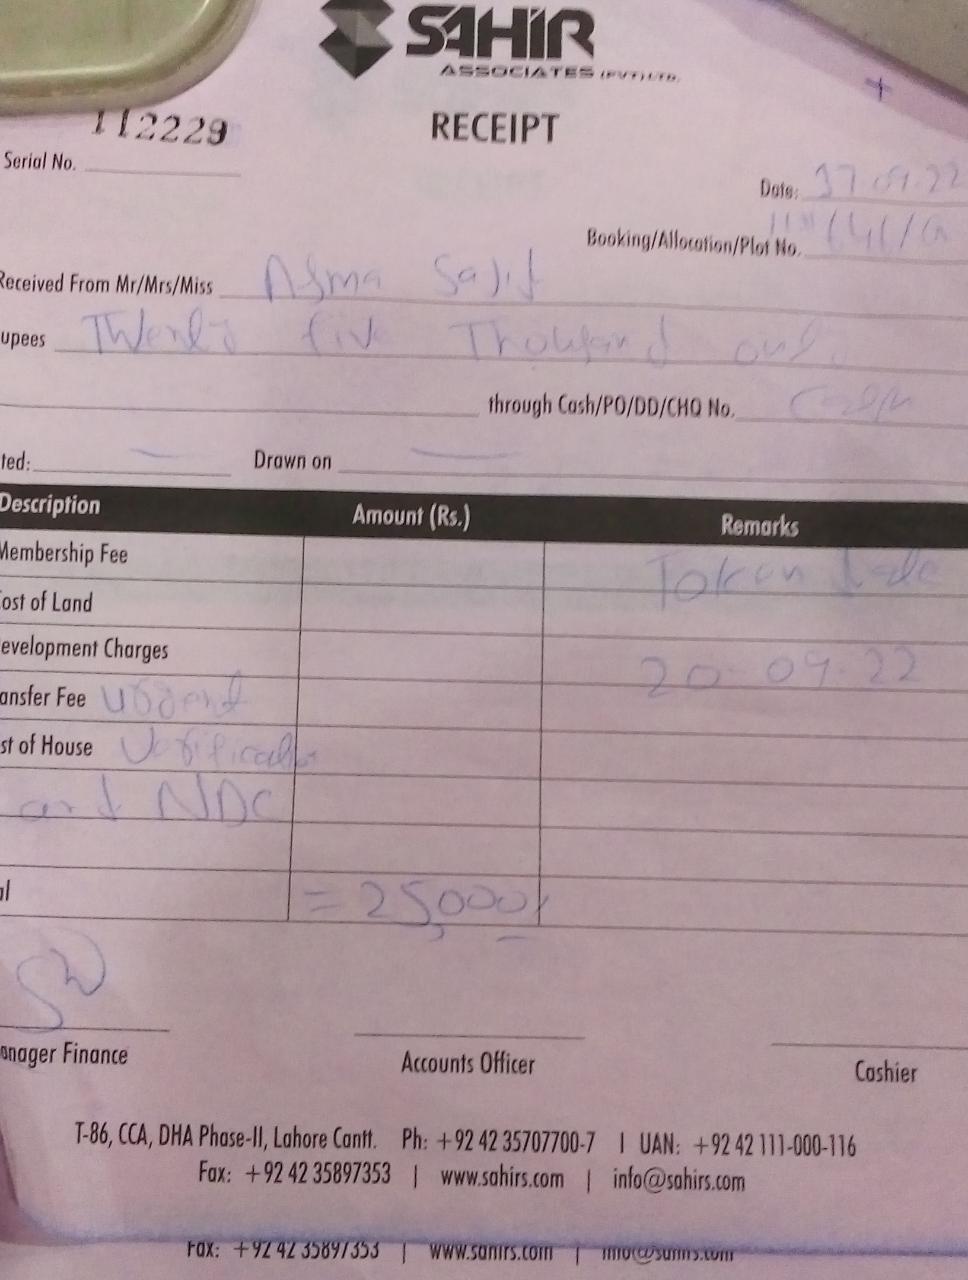 SAHIR
ASSOCIATES (PVT) LTD.
112229
RECEIPT
Serial No.
Date: 17.09.22
Booking/Allocation/Plot No.
Received From Mr/Mrs/Miss Asma Sajid
upees Twenty five Thousand only
through Cash/PO/DD/CHQ No. Cash
ted: Drawn on
Description Amount (Rs.) Remarks
Membership Fee Token
Cost of Land
evelopment Charges 20-09-22
ansfer Fee urgent
st of House Verification
and NDC
al = 25,000/-
anager Finance Accounts Officer Cashier
T-86, CCA, DHA Phase-II, Lahore Cantt. Ph: +92 42 35707700-7 | UAN: +92 42 111-000-116
Fax: +92 42 35897353 | www.sahirs.com | info@sahirs.com
Fax: +92 42 35897353 | www.sahirs.com | info@sahirs.com